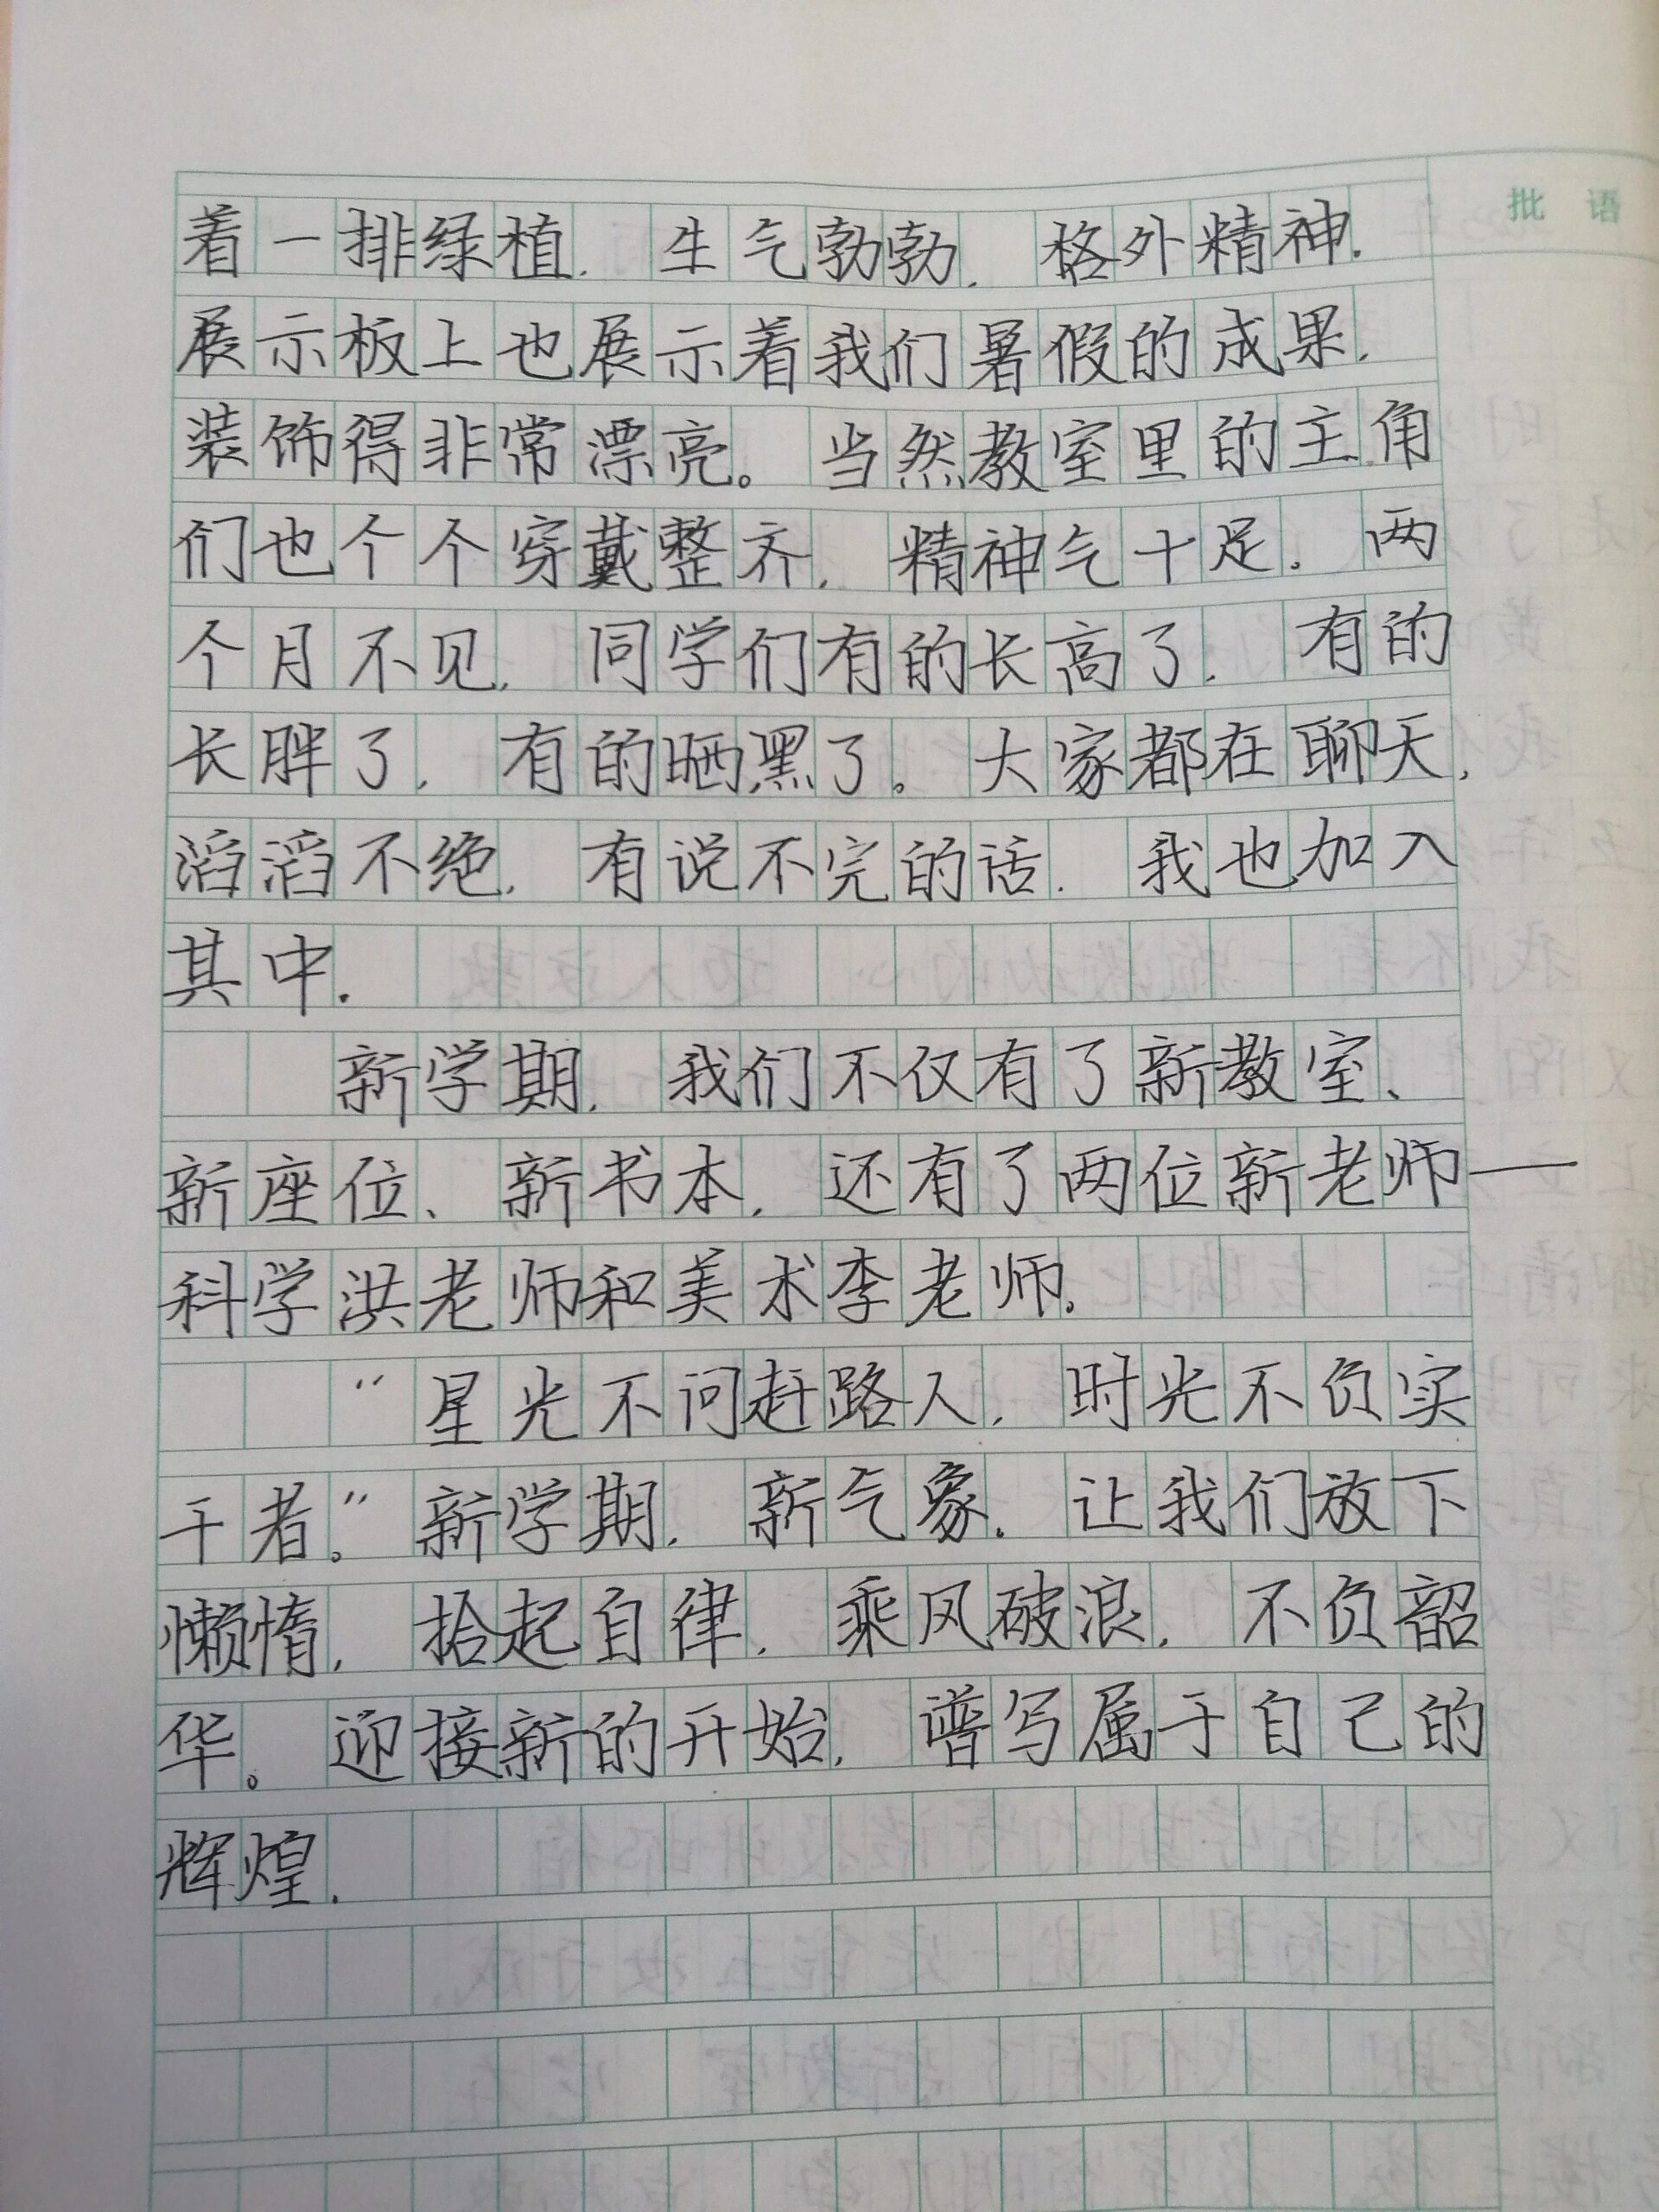 批 语
着一排绿植，生气勃勃，格外精神.
展示板上也展示着我们暑假的成果，
装饰得非常漂亮。当然教室里的主角
们也个个穿戴整齐，精神气十足。两
个月不见，同学们有的长高了，有的
长胖了，有的晒黑了。大家都在聊天，
滔滔不绝，有说不完的话.我也加入
其中.
新学期，我们不仅有了新教室、
新座位、新书本，还有了两位新老师——
科学洪老师和美术李老师.
“星光不问赶路人，时光不负实
干者。”新学期，新气象.让我们放下
懒惰，拾起自律，乘风破浪，不负韶
华。迎接新的开始，谱写属于自己的
辉煌.